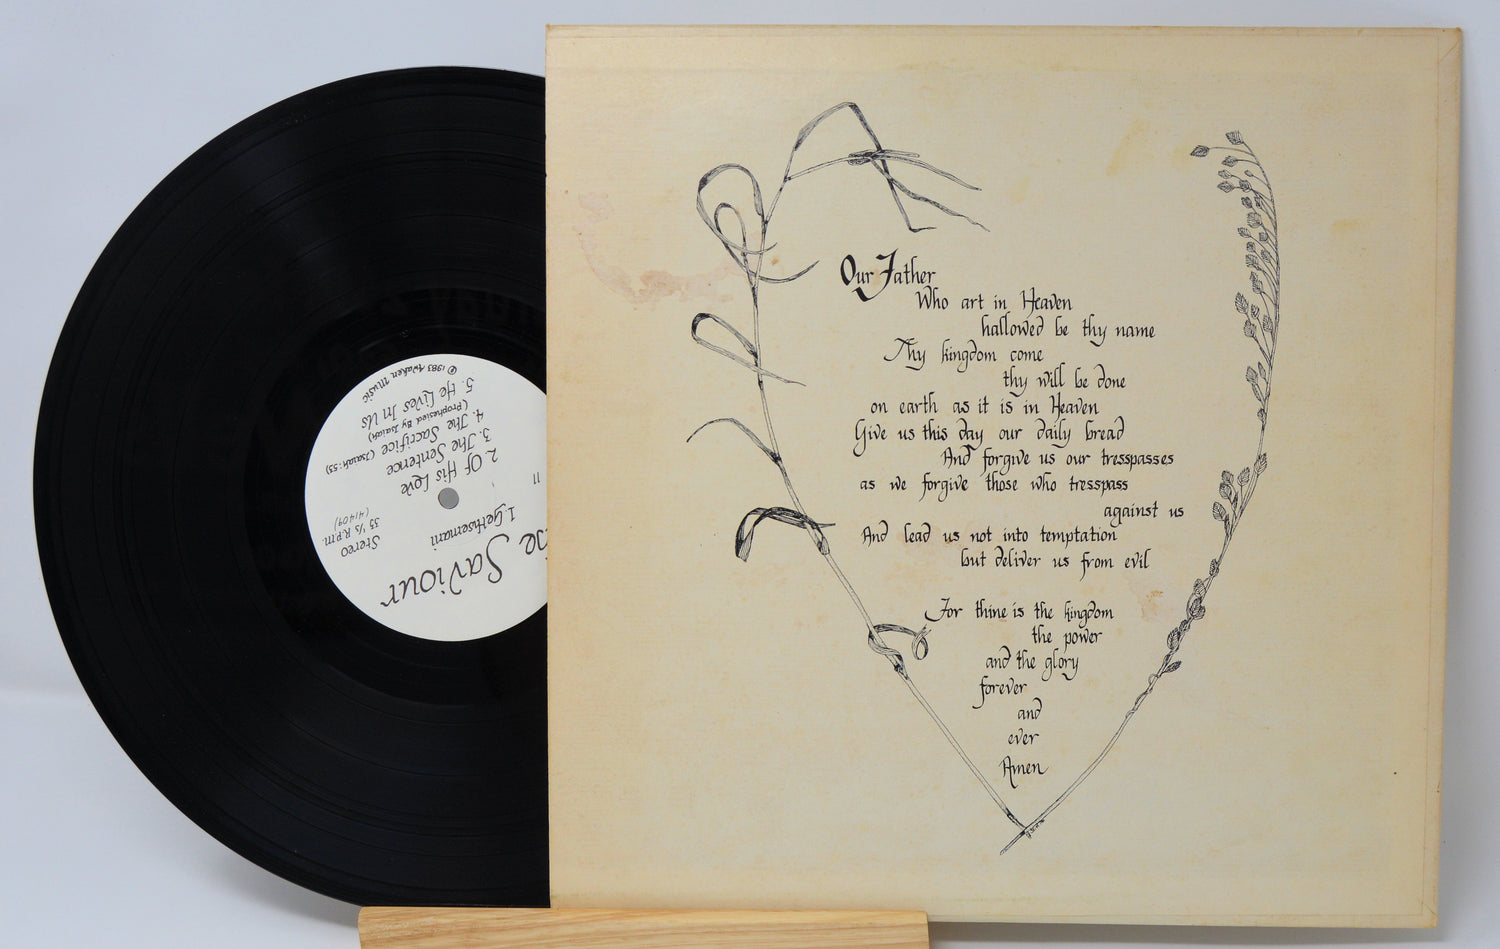 Saviour
Stereo
33 1/3 R.P.M.
(41409)
11
1. Gethsemani
2. Of His Love
3. The Sentence
4. The Sacrifice (Isaiah:53)
(Prophesied By Isaiah)
5. He Lives In Us
© 1983 Awaken Music
Our Father
Who art in Heaven
hallowed be thy name
Thy kingdom come
thy will be done
on earth as it is in Heaven
Give us this day our daily bread
And forgive us our tresspasses
as we forgive those who tresspass
against us
And lead us not into temptation
but deliver us from evil
For thine is the kingdom
the power
and the glory
forever
and
ever
Amen